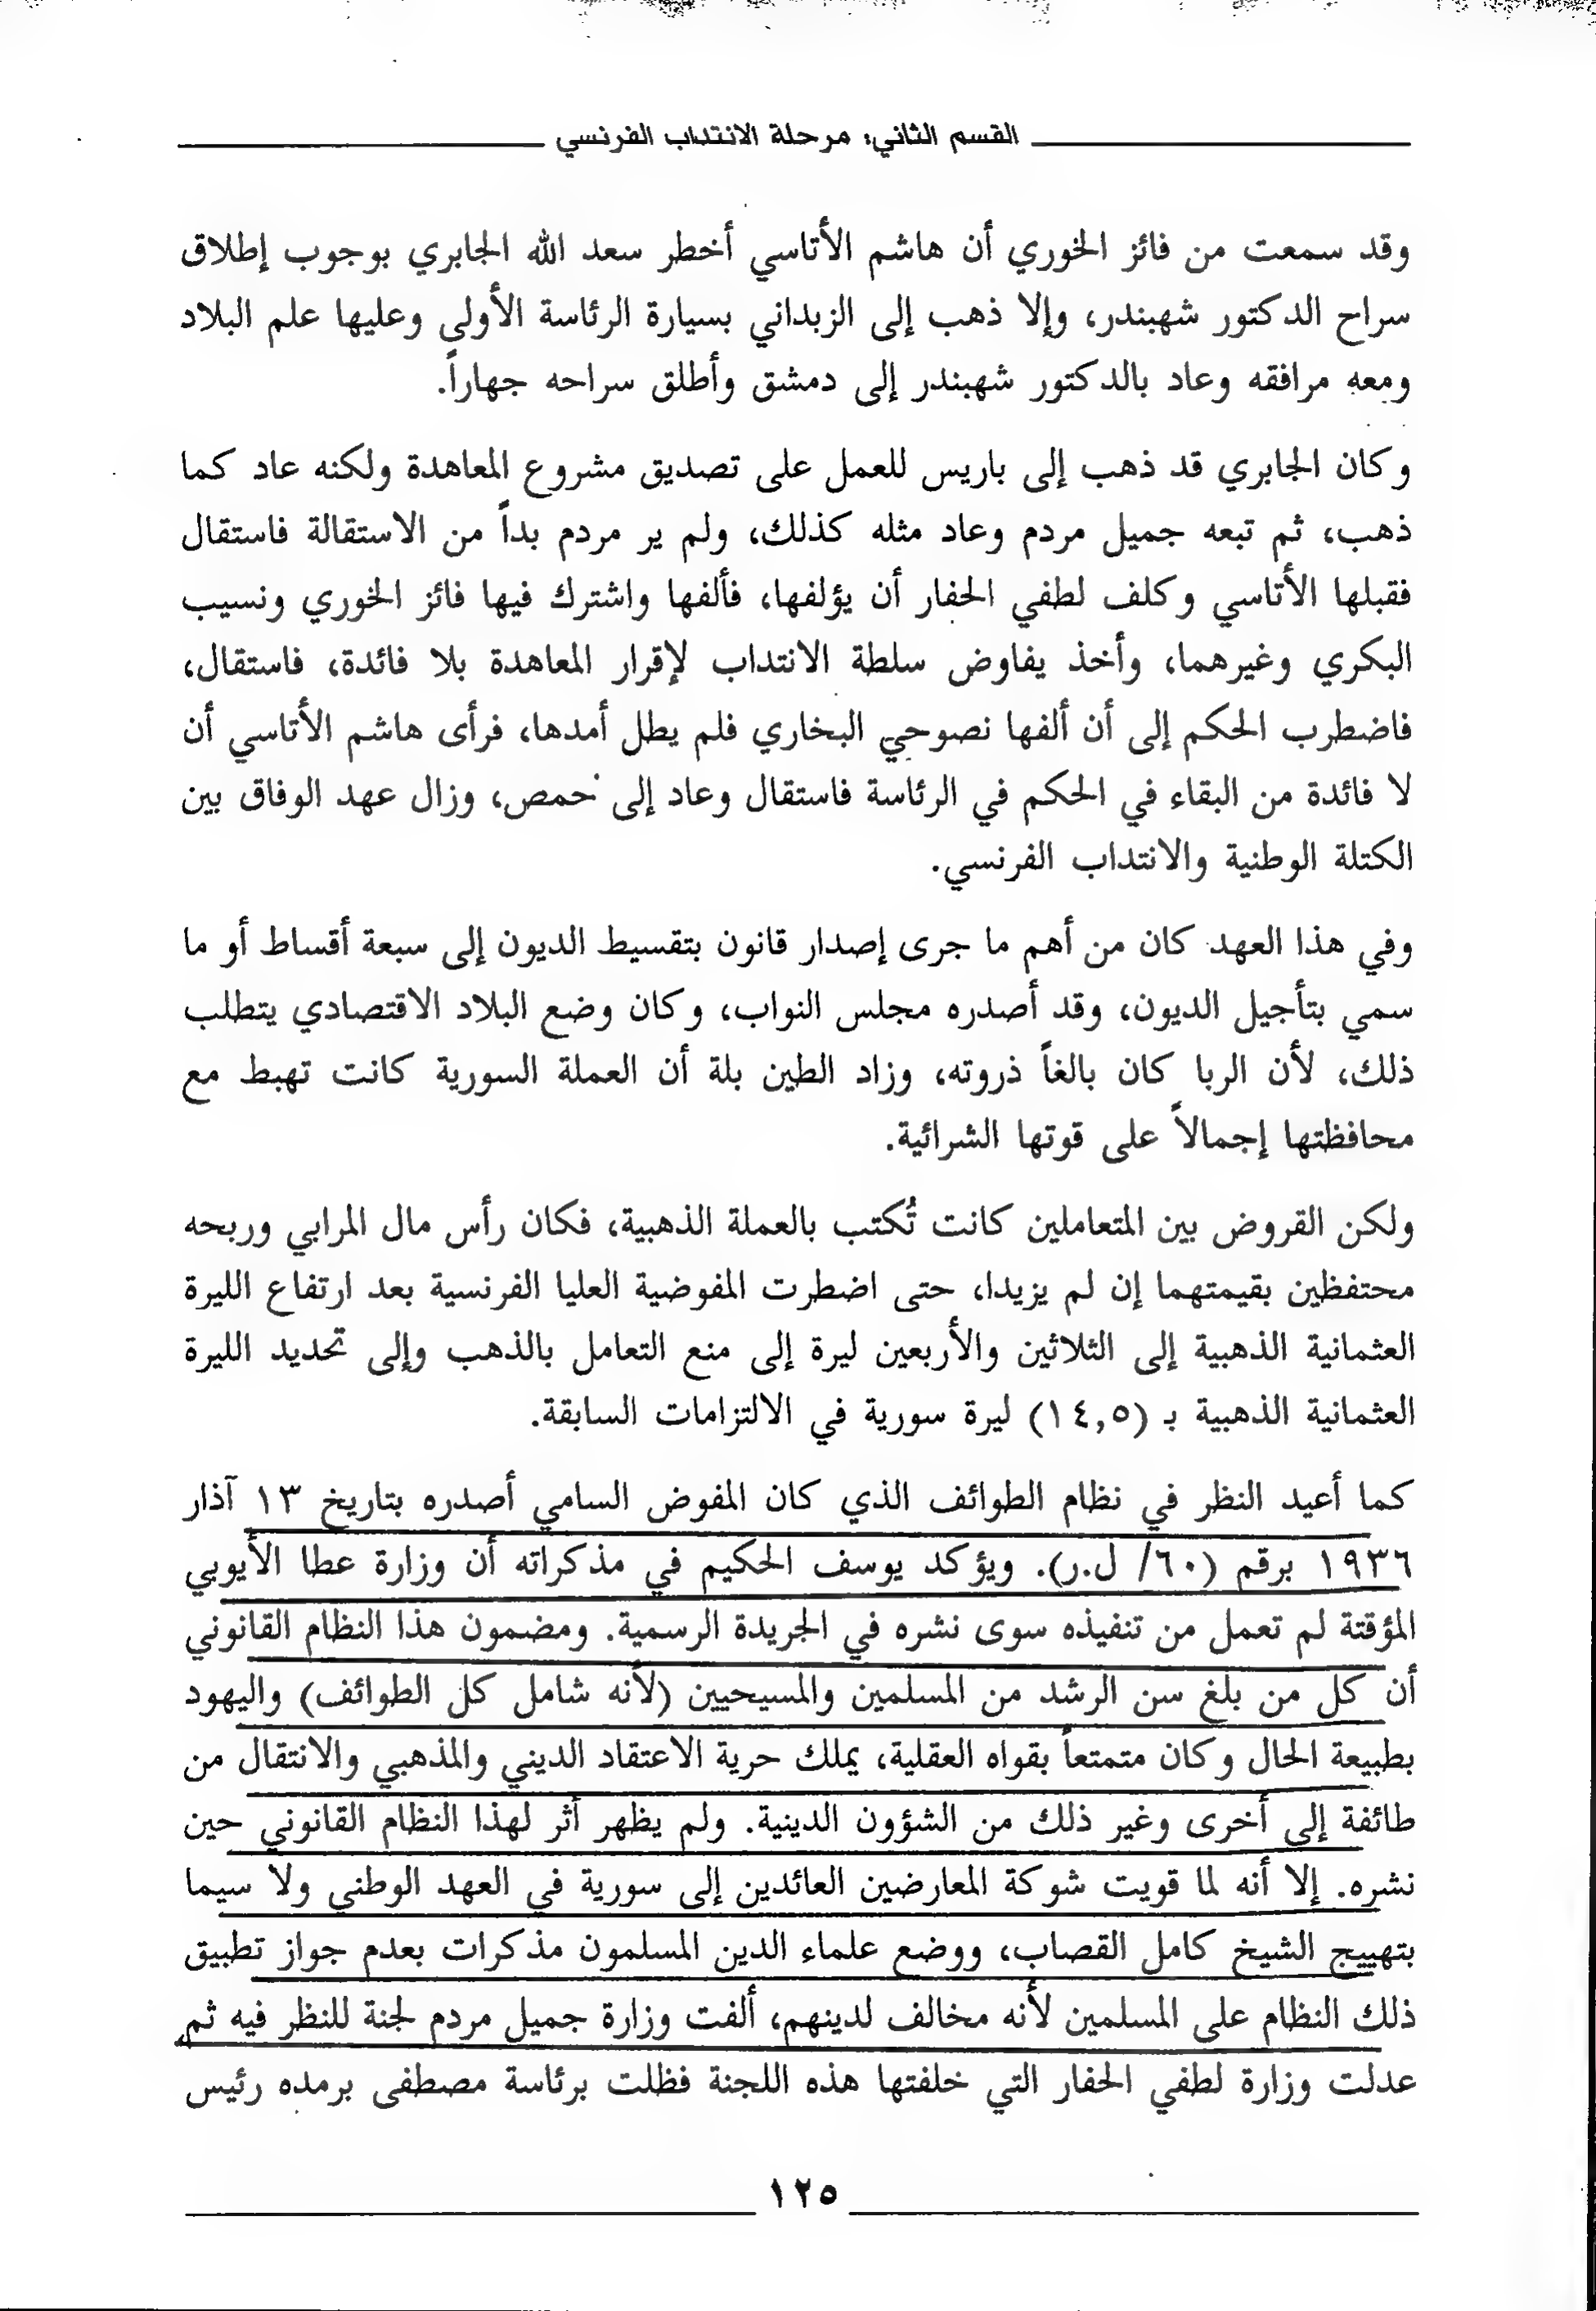 القسم الثاني: مرحلة الانتداب الفرنسي
وقد سمعت من فائز الخوري أن هاشم الأتاسي أخطر سعد الله الجابري بوجوب إطلاق
سراح الدكتور شهبندر، وإلا ذهب إلى الزبداني بسيارة الرئاسة الأولى وعليها علم البلاد
ومعه مرافقه وعاد بالدكتور شهبندر إلى دمشق وأطلق سراحه جهاراً.
وكان الجابري قد ذهب إلى باريس للعمل على تصديق مشروع المعاهدة ولكنه عاد كما
ذهب، ثم تبعه جميل مردم وعاد مثله كذلك، ولم ير مردم بداً من الاستقالة فاستقال
فقبلها الأتاسي وكلف لطفي الحفار أن يؤلفها، فألفها واشترك فيها فائز الخوري ونسيب
البكري وغيرهما، وأخذ يفاوض سلطة الانتداب لإقرار المعاهدة بلا فائدة، فاستقال،
فاضطرب الحكم إلى أن ألفها نصوحي البخاري فلم يطل أمدها، فرأى هاشم الأتاسي أن
لا فائدة من البقاء في الحكم في الرئاسة فاستقال وعاد إلى حمص، وزال عهد الوفاق بين
الكتلة الوطنية والانتداب الفرنسي.
وفي هذا العهد كان من أهم ما جرى إصدار قانون بتقسيط الديون إلى سبعة أقساط أو ما
سمي بتأجيل الديون، وقد أصدره مجلس النواب، وكان وضع البلاد الاقتصادي يتطلب
ذلك، لأن الربا كان بالغاً ذروته، وزاد الطين بلة أن العملة السورية كانت تهبط مع
محافظتها إجمالاً على قوتها الشرائية.
ولكن القروض بين المتعاملين كانت تُكتب بالعملة الذهبية، فكان رأس مال المرابي وربحه
محتفظين بقيمتهما إن لم يزيدا، حتى اضطرت المفوضية العليا الفرنسية بعد ارتفاع الليرة
العثمانية الذهبية إلى الثلاثين والأربعين ليرة إلى منع التعامل بالذهب وإلى تحديد الليرة
العثمانية الذهبية بـ (١٤,٥) ليرة سورية في الالتزامات السابقة.
كما أعيد النظر في نظام الطوائف الذي كان المفوض السامي أصدره بتاريخ ١٣ آذار
١٩٣٦ برقم (٦٠/ ل.ر). ويؤكد يوسف الحكيم في مذكراته أن وزارة عطا الأيوبي
المؤقتة لم تعمل من تنفيذه سوى نشره في الجريدة الرسمية. ومضمون هذا النظام القانوني
أن كل من بلغ سن الرشد من المسلمين والمسيحيين (لأنه شامل كل الطوائف) واليهود
بطبيعة الحال وكان متمتعاً بقواه العقلية، يملك حرية الاعتقاد الديني والمذهبي والانتقال من
طائفة إلى أخرى وغير ذلك من الشؤون الدينية. ولم يظهر أثر لهذا النظام القانوني حين
نشره. إلا أنه لما قويت شوكة المعارضين العائدين إلى سورية في العهد الوطني ولا سيما
بتهييج الشيخ كامل القصاب، ووضع علماء الدين المسلمون مذكرات بعدم جواز تطبيق
ذلك النظام على المسلمين لأنه مخالف لدينهم، ألفت وزارة جميل مردم لجنة للنظر فيه ثم
عدلت وزارة لطفي الحفار التي خلفتها هذه اللجنة فظلت برئاسة مصطفى برمده رئيس
١٢٥